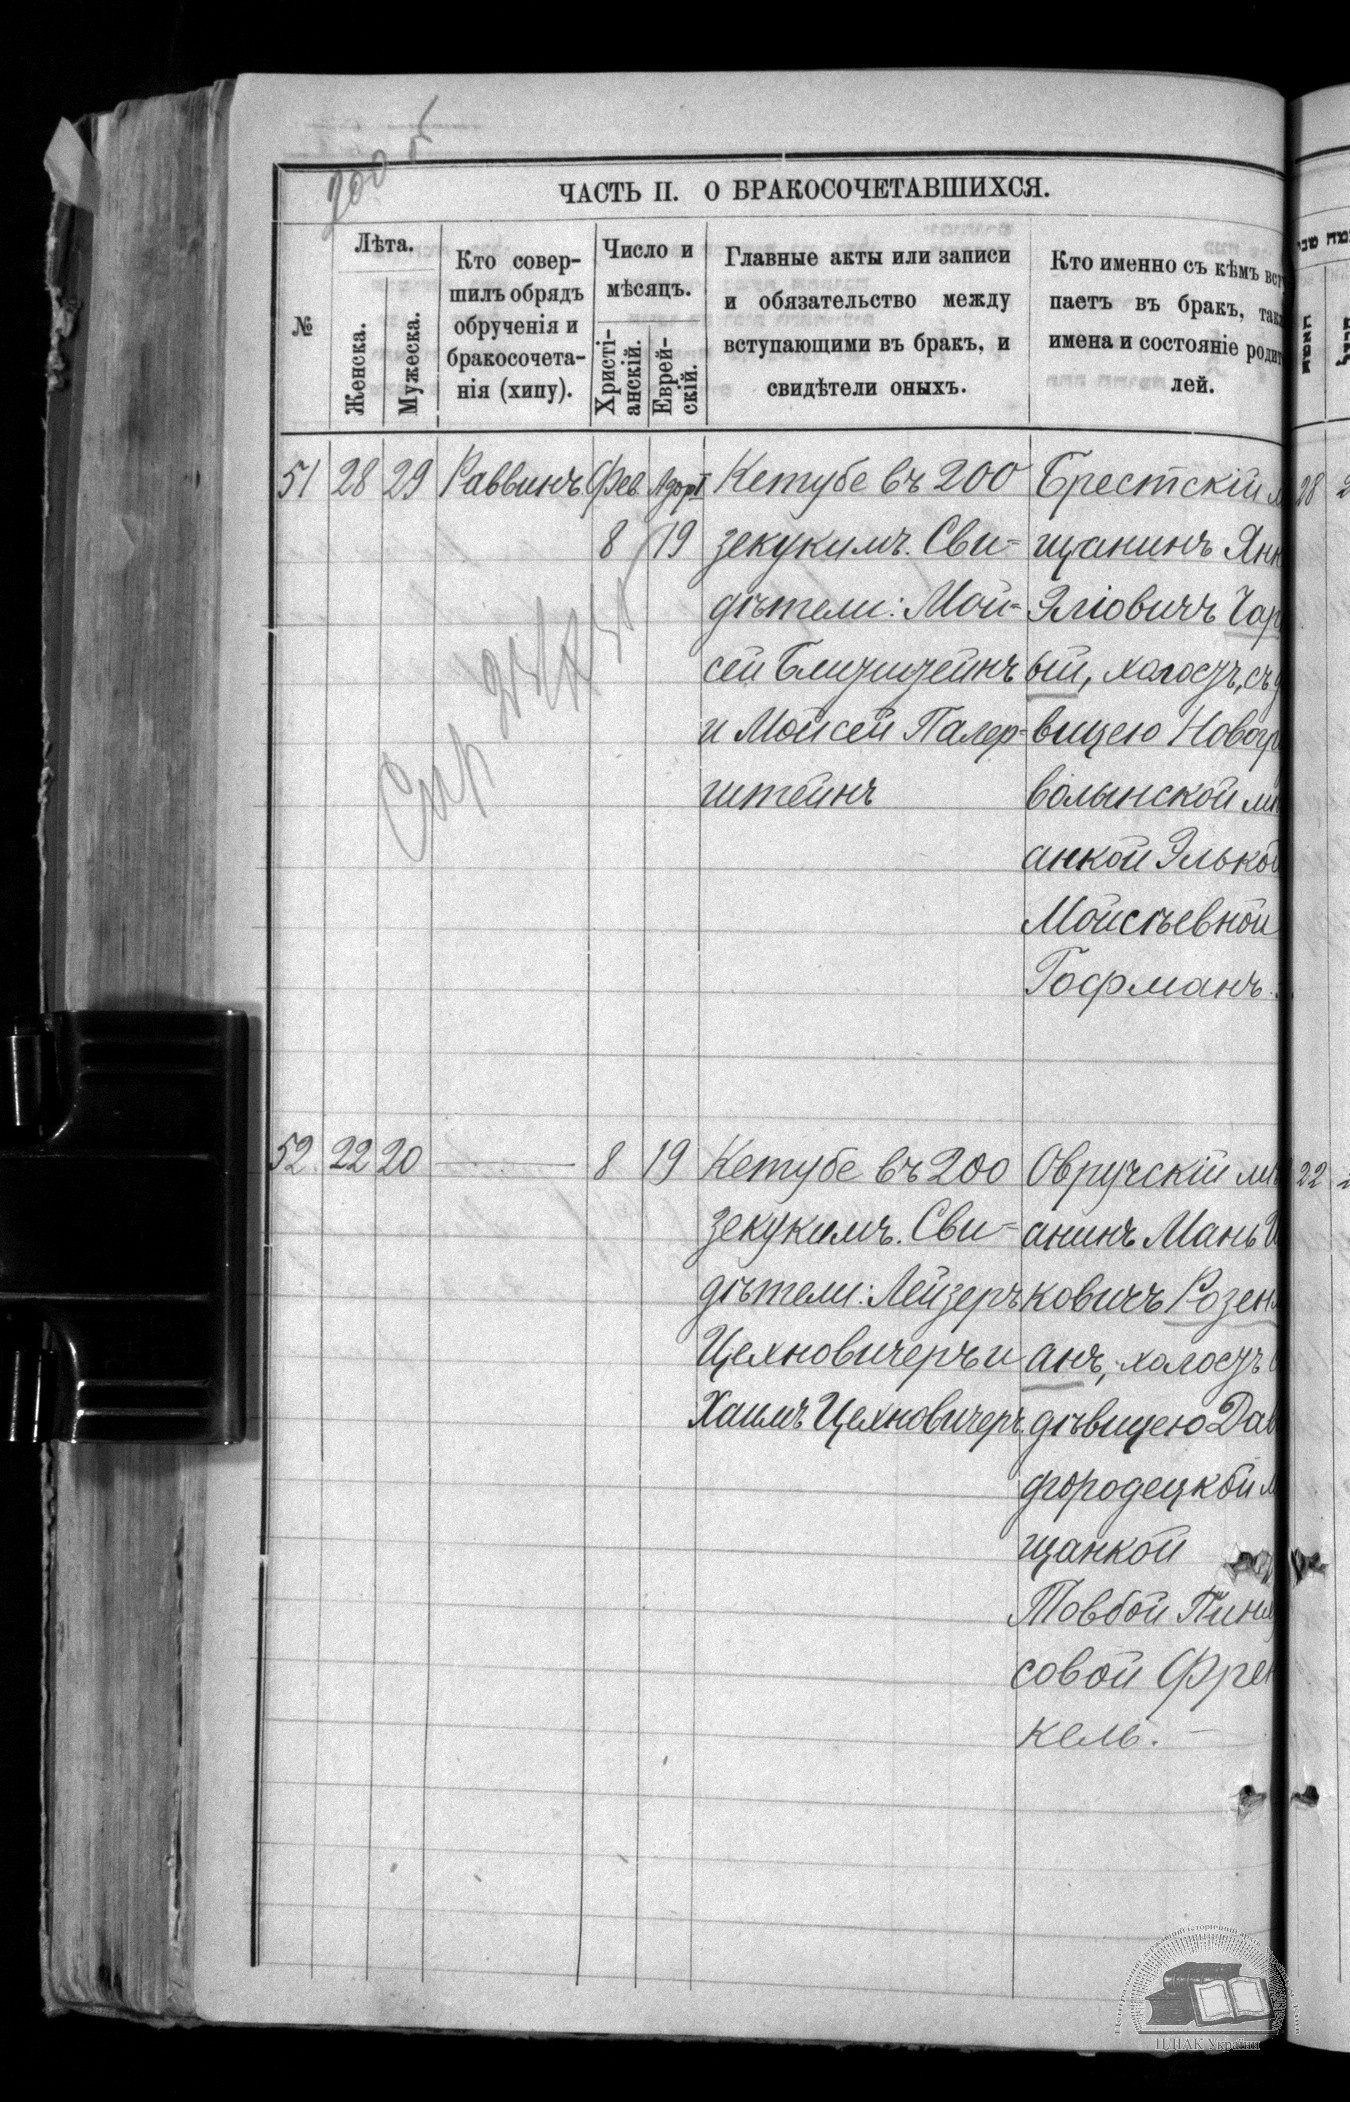 ЧАСТЬ II. О БРАКОСОЧЕТАВШИХСЯ.
№
Лѣта.
Женска.
Мужеска.
Кто совер-
шилъ обрядъ
обрученія и
бракосочета-
нія (хипу).
Число и
мѣсяцъ.
Христі-
анскій.
Еврей-
скій.
Главные акты или записи
и обязательство между
вступающими въ бракъ, и
свидѣтели оныхъ.
Кто именно съ кѣмъ всту
паетъ въ бракъ, так
имена и состояніе родит
лей.
51 28 29 Раввинъ Фев. Адоръ I
8 19
Кетубе въ 200
зекукимъ. Сви-
дѣтели: Мой-
сей
и Мойсей Палер-
штейнъ
Брестскій м
щанинъ Янк
Эліовичъ Чор
ый, холосъ, съ д
вицею Новогр
волынской мѣ
анкой Элькой
Мойсѣевной
Гофманъ.
28
52 22 20 — 8 19
Кетубе въ 200
зекукимъ. Сви-
дѣтели: Лейзеръ
Цехновичеръ и
Хаимъ Цехновичеръ.
Овручскій мѣ
анинъ Мань И
ковичъ Розен
анъ, холосъ
дѣвицею Дав
дгородецкой м
щанкой
Товбой Пинх
совой Френ
кель. —
22
ЦДІАК України